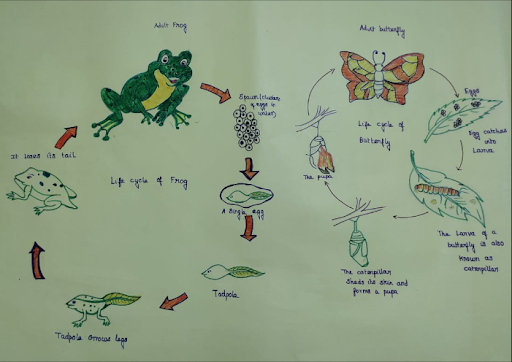 Adult Frog
Spawn (cluster
of eggs in
water)
A single egg
Tadpole
Tadpole Grows legs
It loses its tail
Life cycle of Frog
Adult butterfly
Eggs
Egg catches
into
Larva
The Larva of a
butterfly is also
known as
caterpillar
The caterpillar
sheds its skin and
forms a pupa
The pupa
Life cycle of
Butterfly